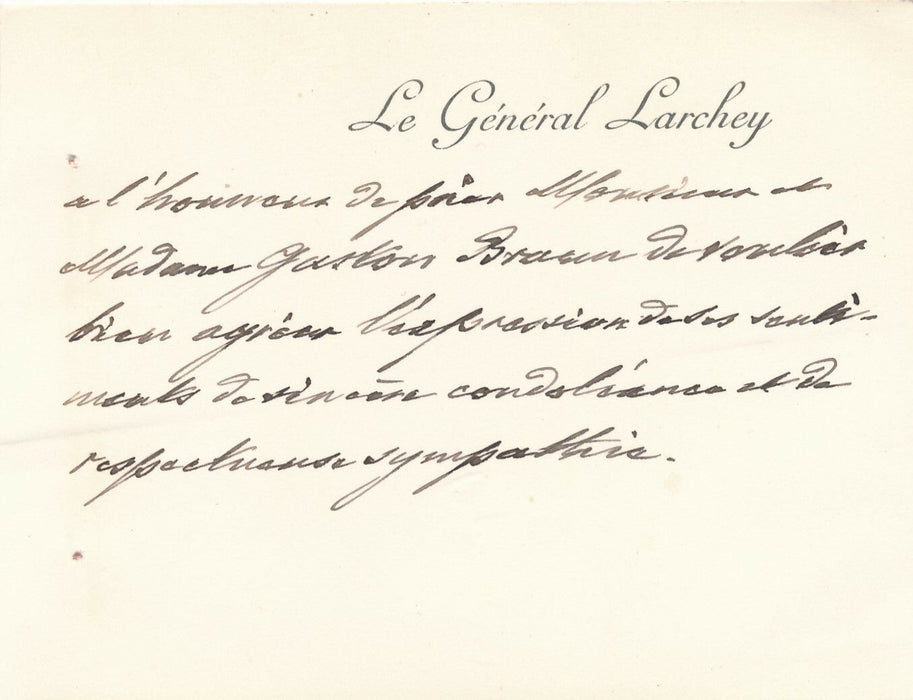 Le Général Larchey
a l'honneur de prier Monsieur et
Madame Gaston Braun de vouloir
bien agréer l'expression de ses senti-
ments de sincère condoléance et de
respectueuse sympathie.